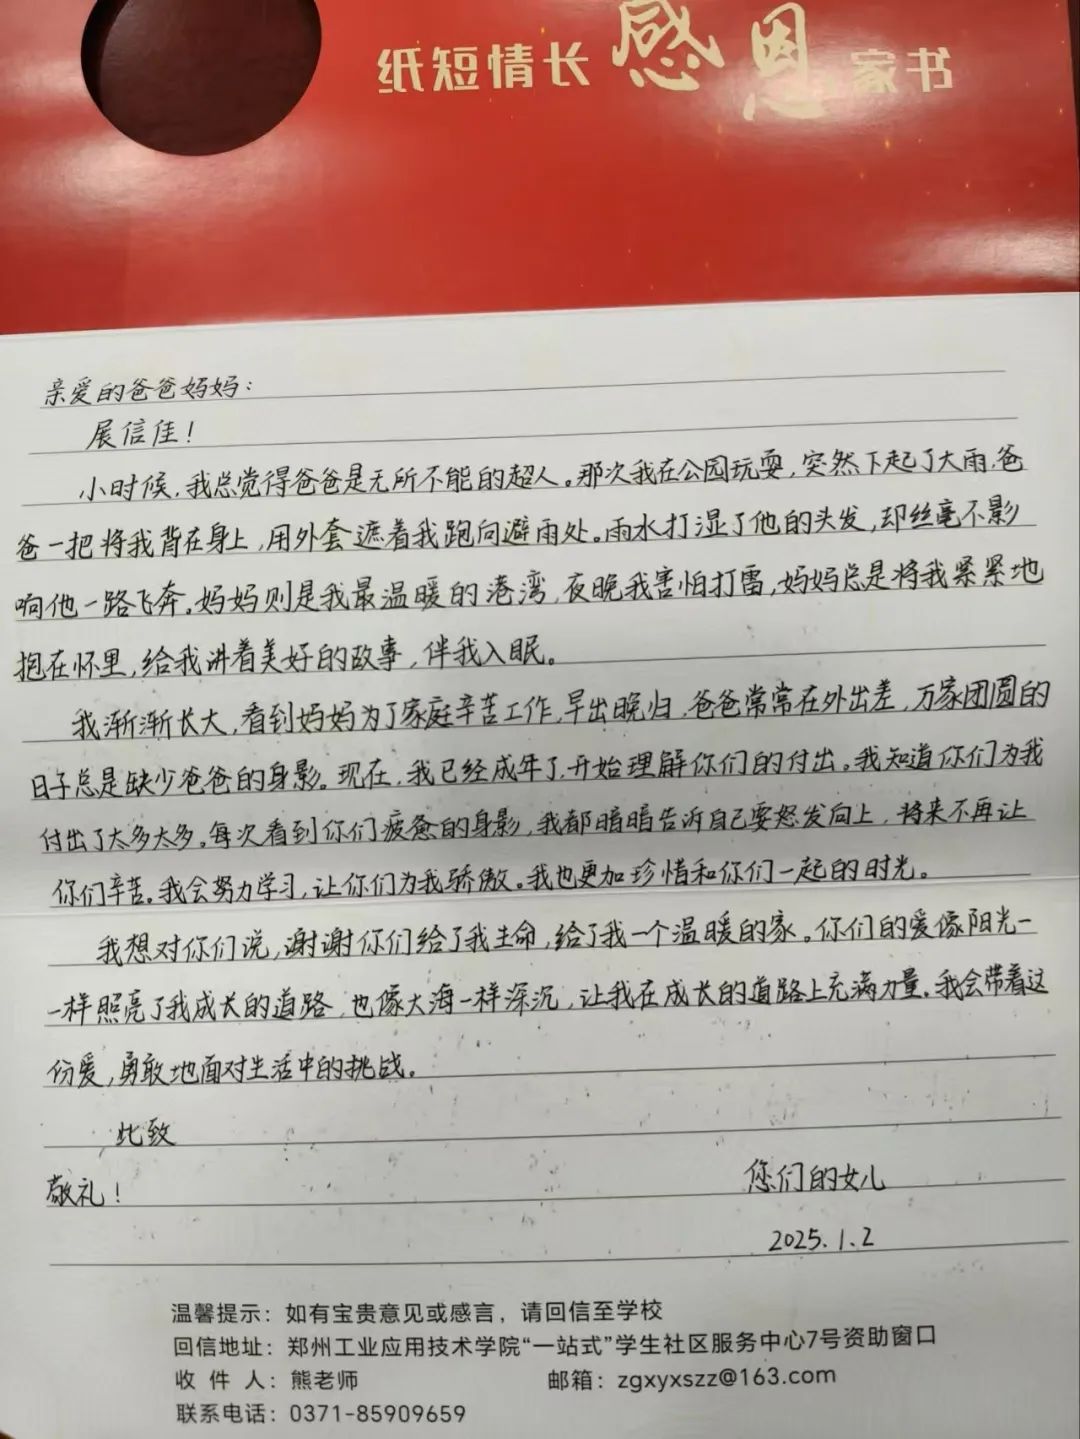 纸短情长 感恩 家书
亲爱的爸爸妈妈：
展信佳！
小时候，我总觉得爸爸是无所不能的超人。那次我在公园玩耍，突然下起了大雨，爸
爸一把将我背在身上，用外套遮着我跑向避雨处。雨水打湿了他的头发，却丝毫不影
响他一路飞奔。妈妈则是我最温暖的港湾，夜晚我害怕打雷，妈妈总是将我紧紧地
抱在怀里，给我讲着美好的故事，伴我入眠。
我渐渐长大，看到妈妈为了家庭辛苦工作，早出晚归，爸爸常常在外出差，万家团圆的
日子总是缺少爸爸的身影。现在，我已经成年了，开始理解你们的付出。我知道你们为我
付出了太多太多。每次看到你们疲惫的身影，我都暗暗告诉自己要怒发向上，将来不再让
你们辛苦。我会努力学习，让你们为我骄傲。我也更加珍惜和你们一起的时光。
我想对你们说，谢谢你们给了我生命，给了我一个温暖的家。你们的爱像阳光一
一样照亮了我成长的道路，也像大海一样深沉，让我在成长的道路上充满力量。我会带着这
份爱，勇敢地面对生活中的挑战。
此致
敬礼！
您们的女儿
2025.1.2
温馨提示：如有宝贵意见或感言，请回信至学校
回信地址：郑州工业应用技术学院“一站式”学生社区服务中心7号资助窗口
收 件 人：熊老师 邮箱：zgxyxszz@163.com
联系电话：0371-85909659